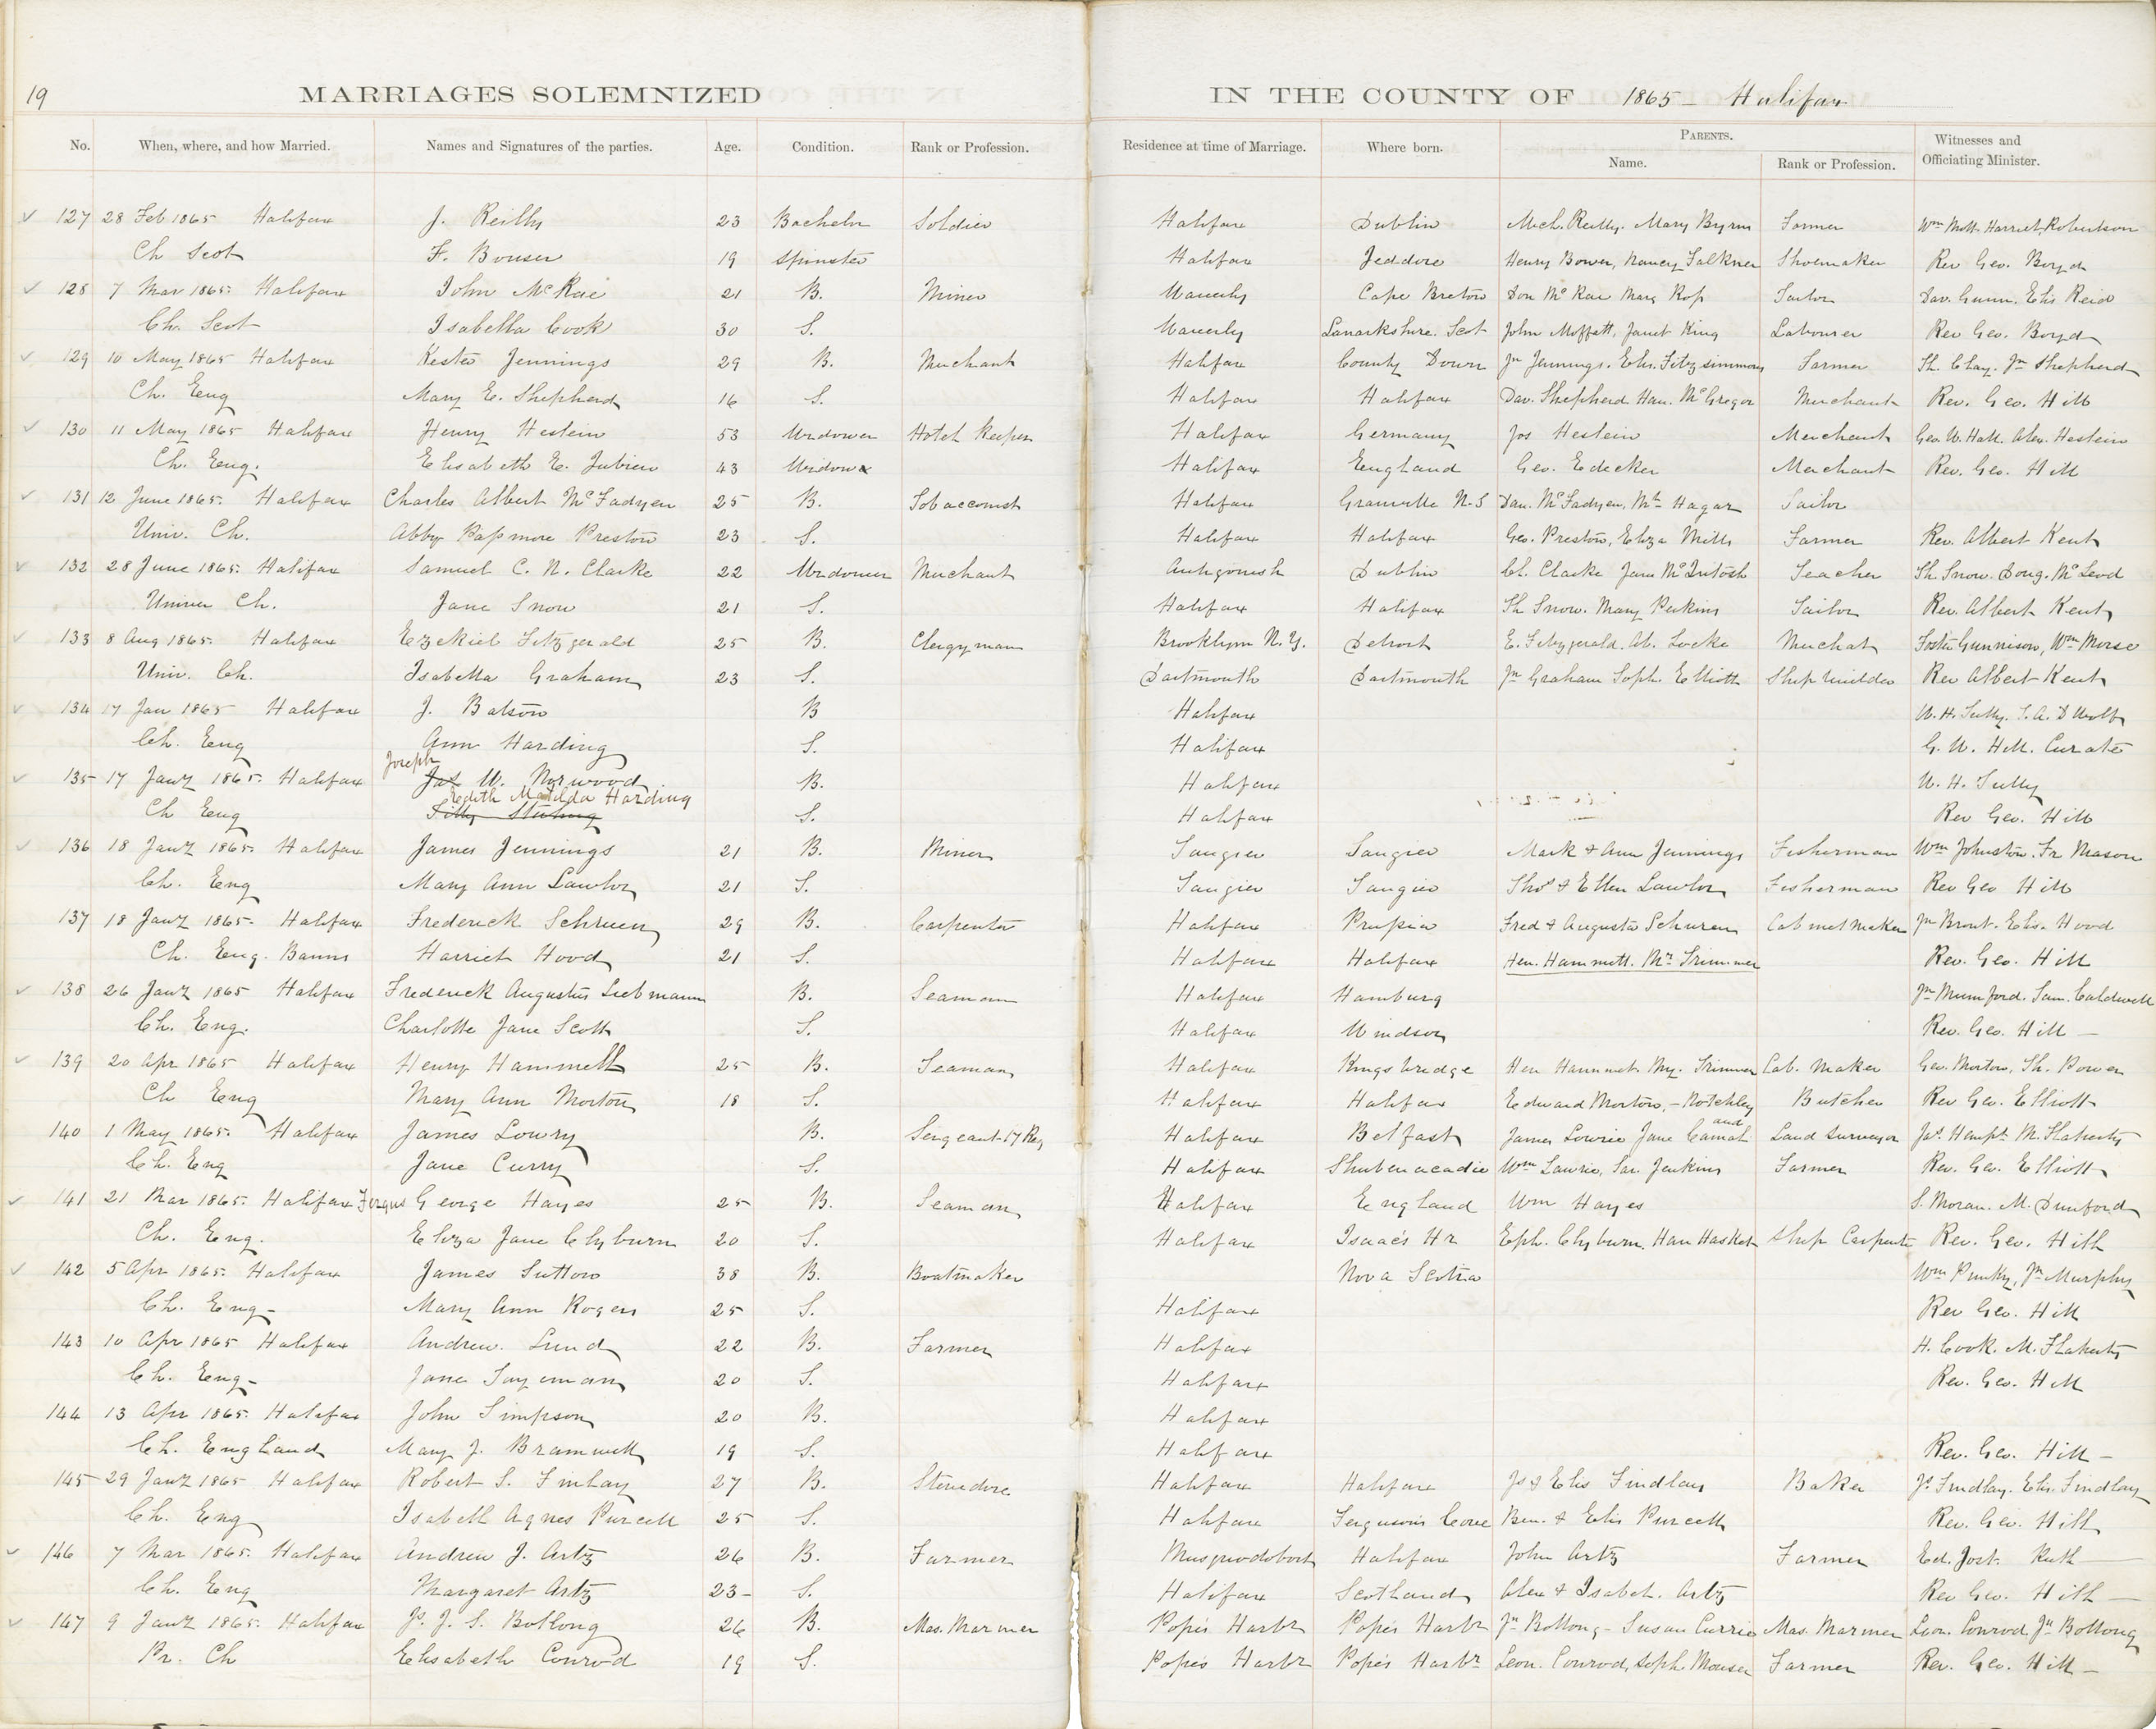 19
MARRIAGES SOLEMNIZED IN THE COUNTY OF 1865 - Halifax
No. When, where, and how Married. Names and Signatures of the parties. Age. Condition. Rank or Profession. Residence at time of Marriage. Where born. PARENTS. Name. Rank or Profession. Witnesses and Officiating Minister.
127 28 Feb 1865 Halifax J. Reilly 23 Bachelor Soldier Halifax Dublin Mich. Reilly. Mary Byrns Farmer Wm Mott. Harriet Robertson
Ch Scot F. Bouser 19 Spinster Halifax Jeddore Henry Bower, Nancy Falkner Shoemaker Rev Geo. Boyd
128 7 Mar 1865. Halifax John McRae 21 B. Miner Waverly Cape Breton Don McRae Mary Ross Tailor Dav. Gunn. Elis Reid
Ch. Scot Isabella Cook 30 S. Waverly Lanarkshire. Scot John Moffatt, Janet King Labourer Rev Geo. Boyd
129 10 May 1865 Halifax Kester Jennings 29 B. Merchant Halifax County Down Jn Jennings. Elis. Fitzsimmons Farmer Th. Clay. Jn Shepherd
Ch. Eng Mary E. Shepherd 16 S. Halifax Halifax Dav. Shepherd Han. McGregor Merchant Rev. Geo. Hill
130 11 May 1865 Halifax Henry Hestein 53 Widower Hotel Keeper Halifax Germany Jos Hestein Merchant Geo. W. Hall. Alex. Hestein
Ch. Eng. Elisabeth E. Jubien 43 Widow Halifax England Geo. Edecker Merchant Rev. Geo. Hill
131 12 June 1865. Halifax Charles Albert McFadyen 25 B. Tobacconist Halifax Granville N.S Dan. McFadyen, Mt Hagar Tailor
Univ. Ch. Abby Passmore Preston 23 S. Halifax Halifax Geo. Preston, Eliza Mills Farmer Rev. Albert Kent
132 28 June 1865. Halifax Samuel C. N. Clarke 22 Widower Merchant Antigonish Dublin Ch. Clarke Jane McIntosh Teacher Th Snow. Doug. McLeod
Univer Ch. Jane Snow 21 S. Halifax Halifax Th Snow. Mary Perkins Tailor Rev. Albert Kent
133 8 Aug 1865. Halifax Ezekiel Fitzgerald 25 B. Clergyman Brooklynn N.Y. Detroit E. Fitzgerald. Ab. Locke Merchat Foster Gunnison, Wm Morse
Univ. Ch. Isabella Graham 23 S. Dartmouth Dartmouth Jn Graham Soph. Elliott Ship builder Rev Albert Kent
134 17 Jan 1865 Halifax J. Batson B Halifax W. H. Tully.
Ch. Eng Ann Harding S. Halifax G. W. Hill. Curate
135 17 Jany 1865. Halifax Joseph Jas W. Norwood B. Halifax W. H. Tully
Ch Eng Edith Matilda Harding S. Halifax Rev Geo. Hill
136 18 Jany 1865. Halifax James Jennings 21 B. Miner Tangier Tangier Mark & Ann Jennings Fisherman Wm Johnston. Fr Mason
Ch. Eng Mary Ann Lawlor 21 S. Tangier Tangier Thos & Ellen Lawlor Fisherman Rev Geo Hill
137 18 Jany 1865. Halifax Frederick Schruen 29 B. Carpenter Halifax Prussia Fred & Augusta Schuren Cabinetmaker Jn Brout. Elis. Hood
Ch. Eng. Banns Harriet Hood 21 S. Halifax Halifax Hen. Hammett. Mr Trimmer Rev. Geo. Hill
138 26 Jany 1865 Halifax Frederick Augustus Liebmann B. Seaman Halifax Hamburg Jn Mumford. Sam. Caldwell
Ch. Eng. Charlotte Jane Scott S. Halifax Windsor Rev. Geo. Hill -
139 20 Apr 1865 Halifax Henry Hammett 25 B. Seaman Halifax Kingsbridge Hen Hammet. My. Trimmer Cab. Maker Geo. Morton, Th. Power
Ch Eng Mary Ann Morton 18 S. Halifax Halifax Edward Morton, - Notchley Butcher Rev Geo. Elliott
140 1 May 1865. Halifax James Lowry B. Sergeant 17 Reg Halifax Belfast James Lowrie Jane and Land Surveyor Jas. Hempt. M. Flaherty
Ch. Eng Jane Curry S. Halifax Shubenacadie Wm Lawrie, Sar. Jenkins Farmer Rev. Geo. Elliott
141 21 Mar 1865. Halifax Fergus George Hayes 25 B. Seaman Halifax England Wm Hayes S. Moran. M. Dunford
Ch. Eng. Eliza Jane Clyburn 20 S. Halifax Isaac's Hr Eph. Clyburn. Han Hasket Ship Carpenter Rev. Geo. Hill
142 5 Apr 1865. Halifax James Sutton 38 B. Boatmaker Nova Scotia Wm Punky, Jn Murphy
Ch. Eng- Mary Ann Rogers 25 S. Halifax Rev Geo. Hill
143 10 Apr 1865 Halifax Andrew. Lund 22 B. Farmer Halifax H. Cook. M. Flaherty
Ch. Eng- Jane 20 S. Halifax Rev. Geo. Hill
144 13 Apr 1865. Halifax John Simpson 20 B. Halifax
Ch. England Mary J. Bramwell 19 S. Halifax Rev. Geo. Hill -
145 29 Jany 1865 Halifax Robert S. Finlay 27 B. Stevedore Halifax Halifax Js & Elis Findlay Baker Js. Findlay. Elis. Findlay
Ch. Eng Isabell Agnes Purcell 25 S. Halifax Ferguson's Cove Ben. & Elis Purcell Rev. Geo. Hill
146 7 Mar 1865. Halifax Andrew J. Artz 26 B. Farmer Musquodoboit Halifax John Artz Farmer Ed. Jost. Ruth
Ch. Eng Margaret Artz 23- S. Halifax Scotland Alex & Isabel. Artz Rev Geo. Hill
147 9 Jany 1865. Halifax Js. J. S. Bollong 26 B. Mas. Mariner Pope's Harbr Pope's Harbr Jn Bollong - Susan Currie Mas. Mariner Leon. Conrod Jn Bollong
Pr. Ch Elisabeth Conrod 19 S. Pope's Harbr Pope's Harbr Leon. Conrod, Soph. Mouser Farmer Rev. Geo. Hill -